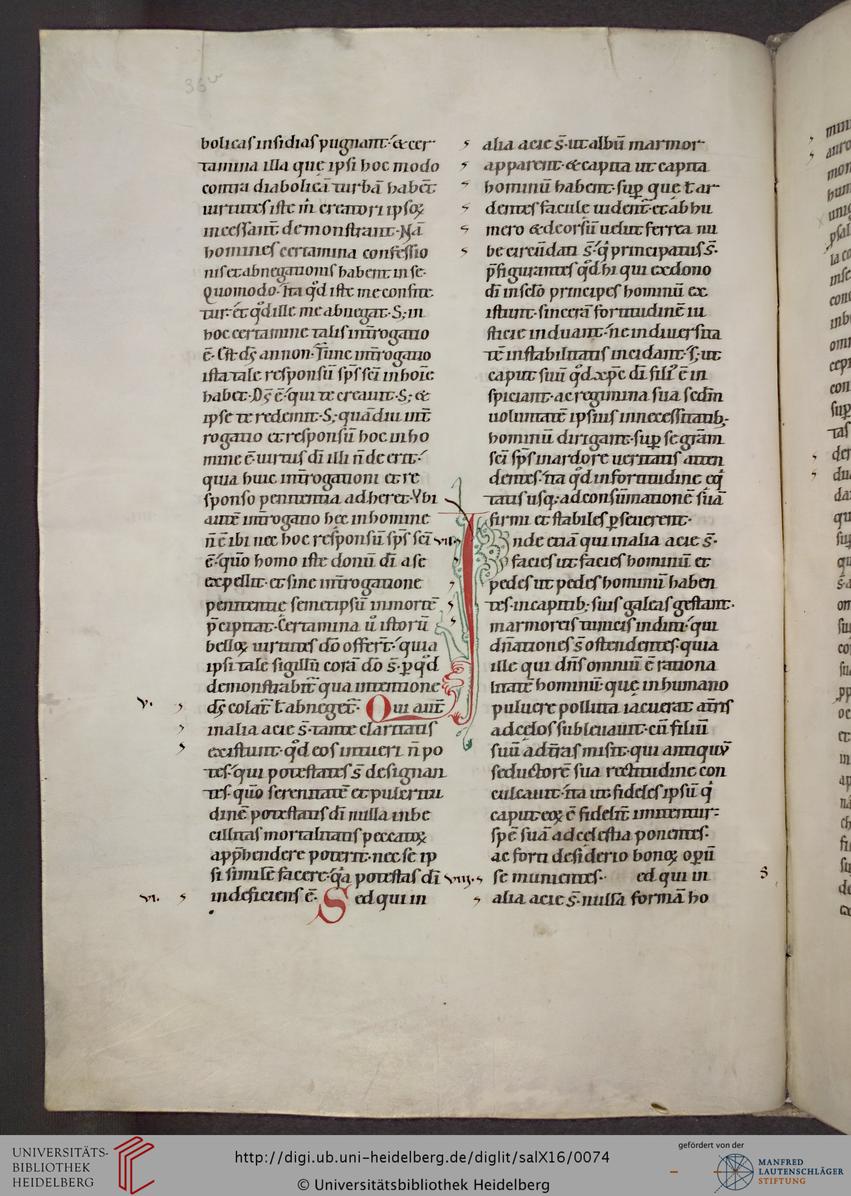 36v
bolicas insidias pugnant· & cer
tamina illa quę ipsi hoc modo
contra diabolicā turbā habēt
uirtutes iste m̄ creatori ipsoꝝ
incessant̄ demonstrant· Nā
homines certamina confessio
nis et abnegationis habent in se·
Quomodo· Ita qd̄ iste me confite
tur· et qd̄ ille me abnegat· S; in
hoc certamine talis int̄rogatio
ē· Est ds̄ an non· Tunc int̄rogatio
ista tale responsū sp̄s sc̄i in hoīe
habet· Ds̄ ē· qui te creauit· S; &
ipse te redemit· S; quādiu int̄
rogatio et responsū hoc in ho
mine ē uirtus dī illi n̄ de erit·
quia huic int̄rogationi et re
sponso penitentia adheret· Vbi
autē int̄rogatio hec in homine
n̄ ē ibi nec hoc responsū sp̄s sc̄i
ē· quō homo iste donū dī a se
expellit· et sine int̄rogatione
penitentie semetipsū in mortē
p̄cipitat· Certamina ū istorū
belloꝝ uirtutes dō offerт̄· quia
ipsi tale sigillū corā dō s̄· ꝑ qd̄
demonstrabit̄ qua intentione
v. ds̄ colat̄ ł abneget̄· Qui aut̄
in alia acie s̄· tante claritatis
existunt· qd̄ eos intueri n̄ po
tes· qui potestates s̄ designan
tes· quō serenitatē et pulcritu
dinē potestatis dī nulla inbe
cillitas mortalitatis peccatoꝝ
app̄hendere poterit· nec se ip
si similē facere· qa potestas dī
vi. indeficiens ē· Sed qui in
alia acie s̄· ut albū marmor
apparent· & capita ut capita
hominū habent· suꝑ quę ł ar
dentes facule uident̄· et ab hu
mero & deorsū uelut ferrea nu
be circūdati s̄· q̄ principatus s̄·
p̄figurantes qd̄ hi qui ex dono
dī in sc̄lō principes hominū ex
istunt· sincerā fortitudinē iu
sticie induant· ne in diuersita
tē instabilitatis incidant· s; ut
caput suū qd̄ xp̄c dī filiꝰ ē in
spiciant· ac regimina sua sedm̄
uoluntatē ipsius in necessitatib;
hominū dirigant· suꝑ se grām
sc̄i sp̄s in ardore ueritatis atten
dentes· ita qd̄ in fortitudine eq̄
tatis usq; ad consūmationē suā
firmi et stabiles ꝑseuerent·
vii. Inde etiā qui in alia acie s̄·
facies ut facies hominū et
pedes ut pedes hominū haben
tes· in capitib; suis galeas gestant·
marmoreis tunicis induti· qui
dn̄ationes s̄ ostendentes· quia
ille qui dn̄s omniū ē rationa
litatē hominū· quę in humano
puluere polluta iacuerat a t̄ris
ad cęlos subleuauit· cū filiū
suū ad t̄ras misit· qui antiquū
seductorē sua rectitudine con
culcauit· ita ut fideles ipsū q̄
caput eoꝝ ē fidelit̄ imitentur·
spē suā ad celestia ponentes·
ac forti desiderio bonoꝝ opꝝū
viii. se munientes· Sed qui in
alia acie s̄· nullā formā ho
UNIVERSITÄTS-
BIBLIOTHEK
HEIDELBERG
http://digi.ub.uni-heidelberg.de/diglit/salX16/0074
© Universitätsbibliothek Heidelberg
gefördert von der
MANFRED
LAUTENSCHLÄGER
STIFTUNG